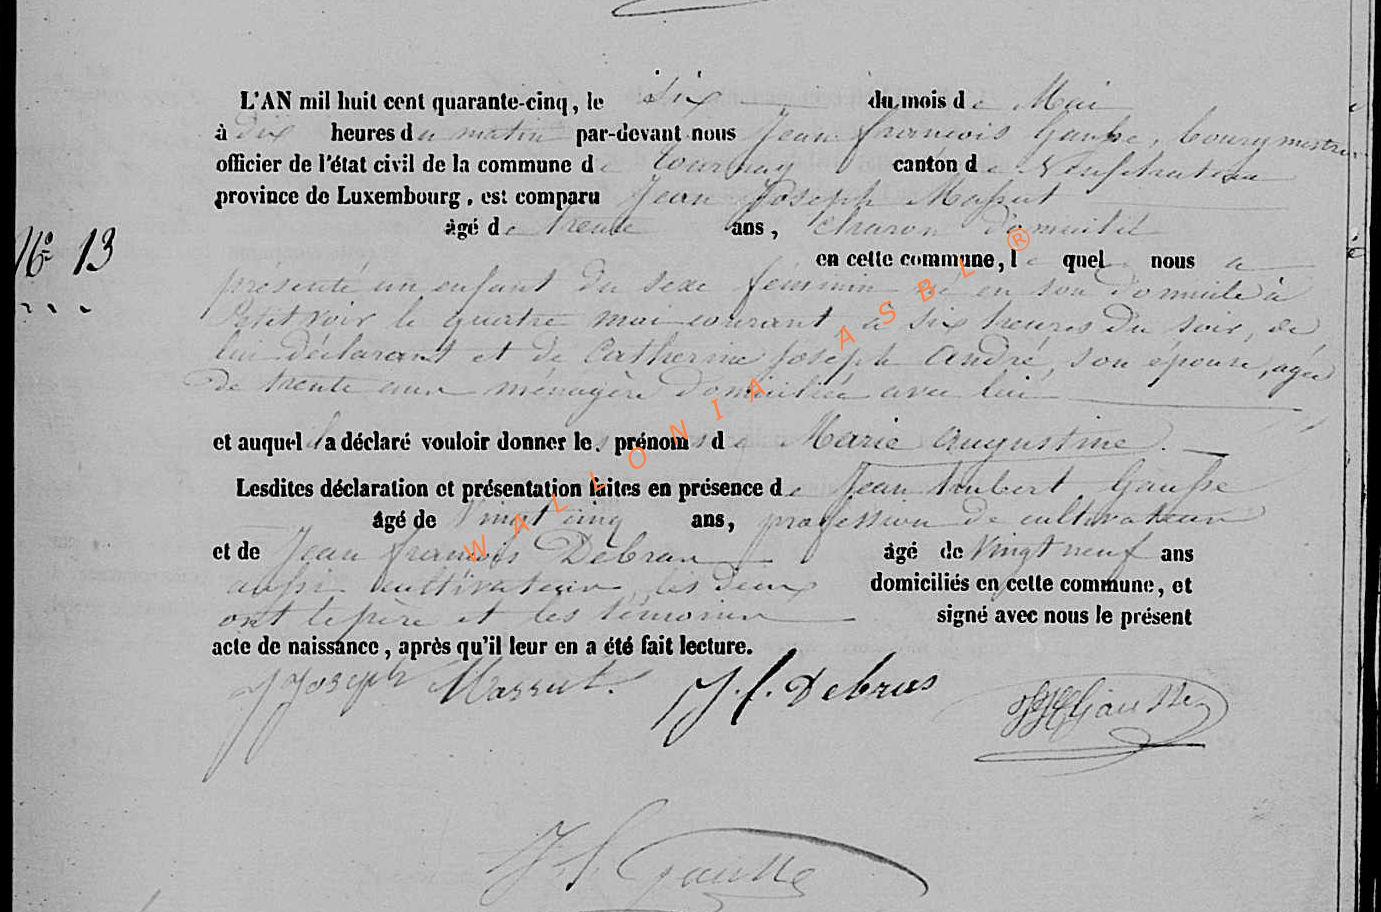 L'AN mil huit cent quarante-cinq, le six du mois de Mai
à dix heures du matin par-devant nous Jean françois Gausse, bourgmestre
officier de l'état civil de la commune de tournay canton de Neufchateau
province de Luxembourg, est comparu Jean Joseph Massut
âgé de trente ans, charon domicilié
N° 13
en cette commune, lequel nous a
presenté un enfant du sexe féminin né en son domicile à
Petitvoir le quatre mai courant à six heures du soir, de
lui déclarant et de Catherine joseph André, son épouse, agée
de trente ans ménagère domiciliée avec lui
et auquel il a déclaré vouloir donner les prénoms de Marie Augustine.
Lesdites déclaration et présentation faites en présence de Jean hubert Gausse
âgé de vingt cinq ans, profession de cultivateur
et de Jean françois Debrus âgé de Vingt neuf ans
aussi cultivateur, les deux domiciliés en cette commune, et
ont le père et les témoins signé avec nous le présent
acte de naissance, après qu'il leur en a été fait lecture.
J Joseph Massut. J. f. Debrus JH Gausse
J f Gausse
WALLONIA ASBL ®